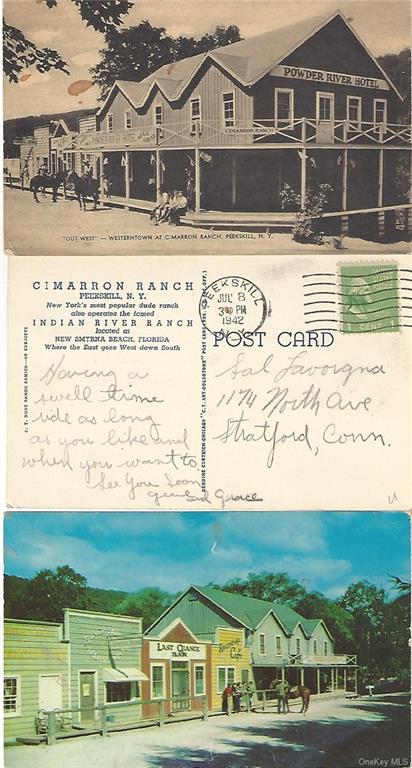 POWDER RIVER HOTEL
CIMARRON RANCH
"OUT WEST" — WESTERNTOWN AT CIMARRON RANCH, PEEKSKILL, N. Y.
CIMARRON RANCH
PEEKSKILL, N. Y.
New York's most popular dude ranch
also operates the famed
INDIAN RIVER RANCH
located at
NEW SMYRNA BEACH, FLORIDA
Where the East goes West down South
Having a
swell time
ride as long
as you like and
when you want to.
See You Soon
and Grace
C. T. DUDE RANCH COMICS—40 SUBJECTS
GENUINE CURTEICH-CHICAGO "C. T. ART-COLORTONE" POST CARD (REG. U.S. PAT. OFF.)
PEEKSKILL
JUL 8
3 PM
1942
N.Y.
1 CENT 1
POST CARD
Sal
1174 North Ave
Stratford, Conn.
LAST CHANCE
BAR
Cafe
OneKey MLS